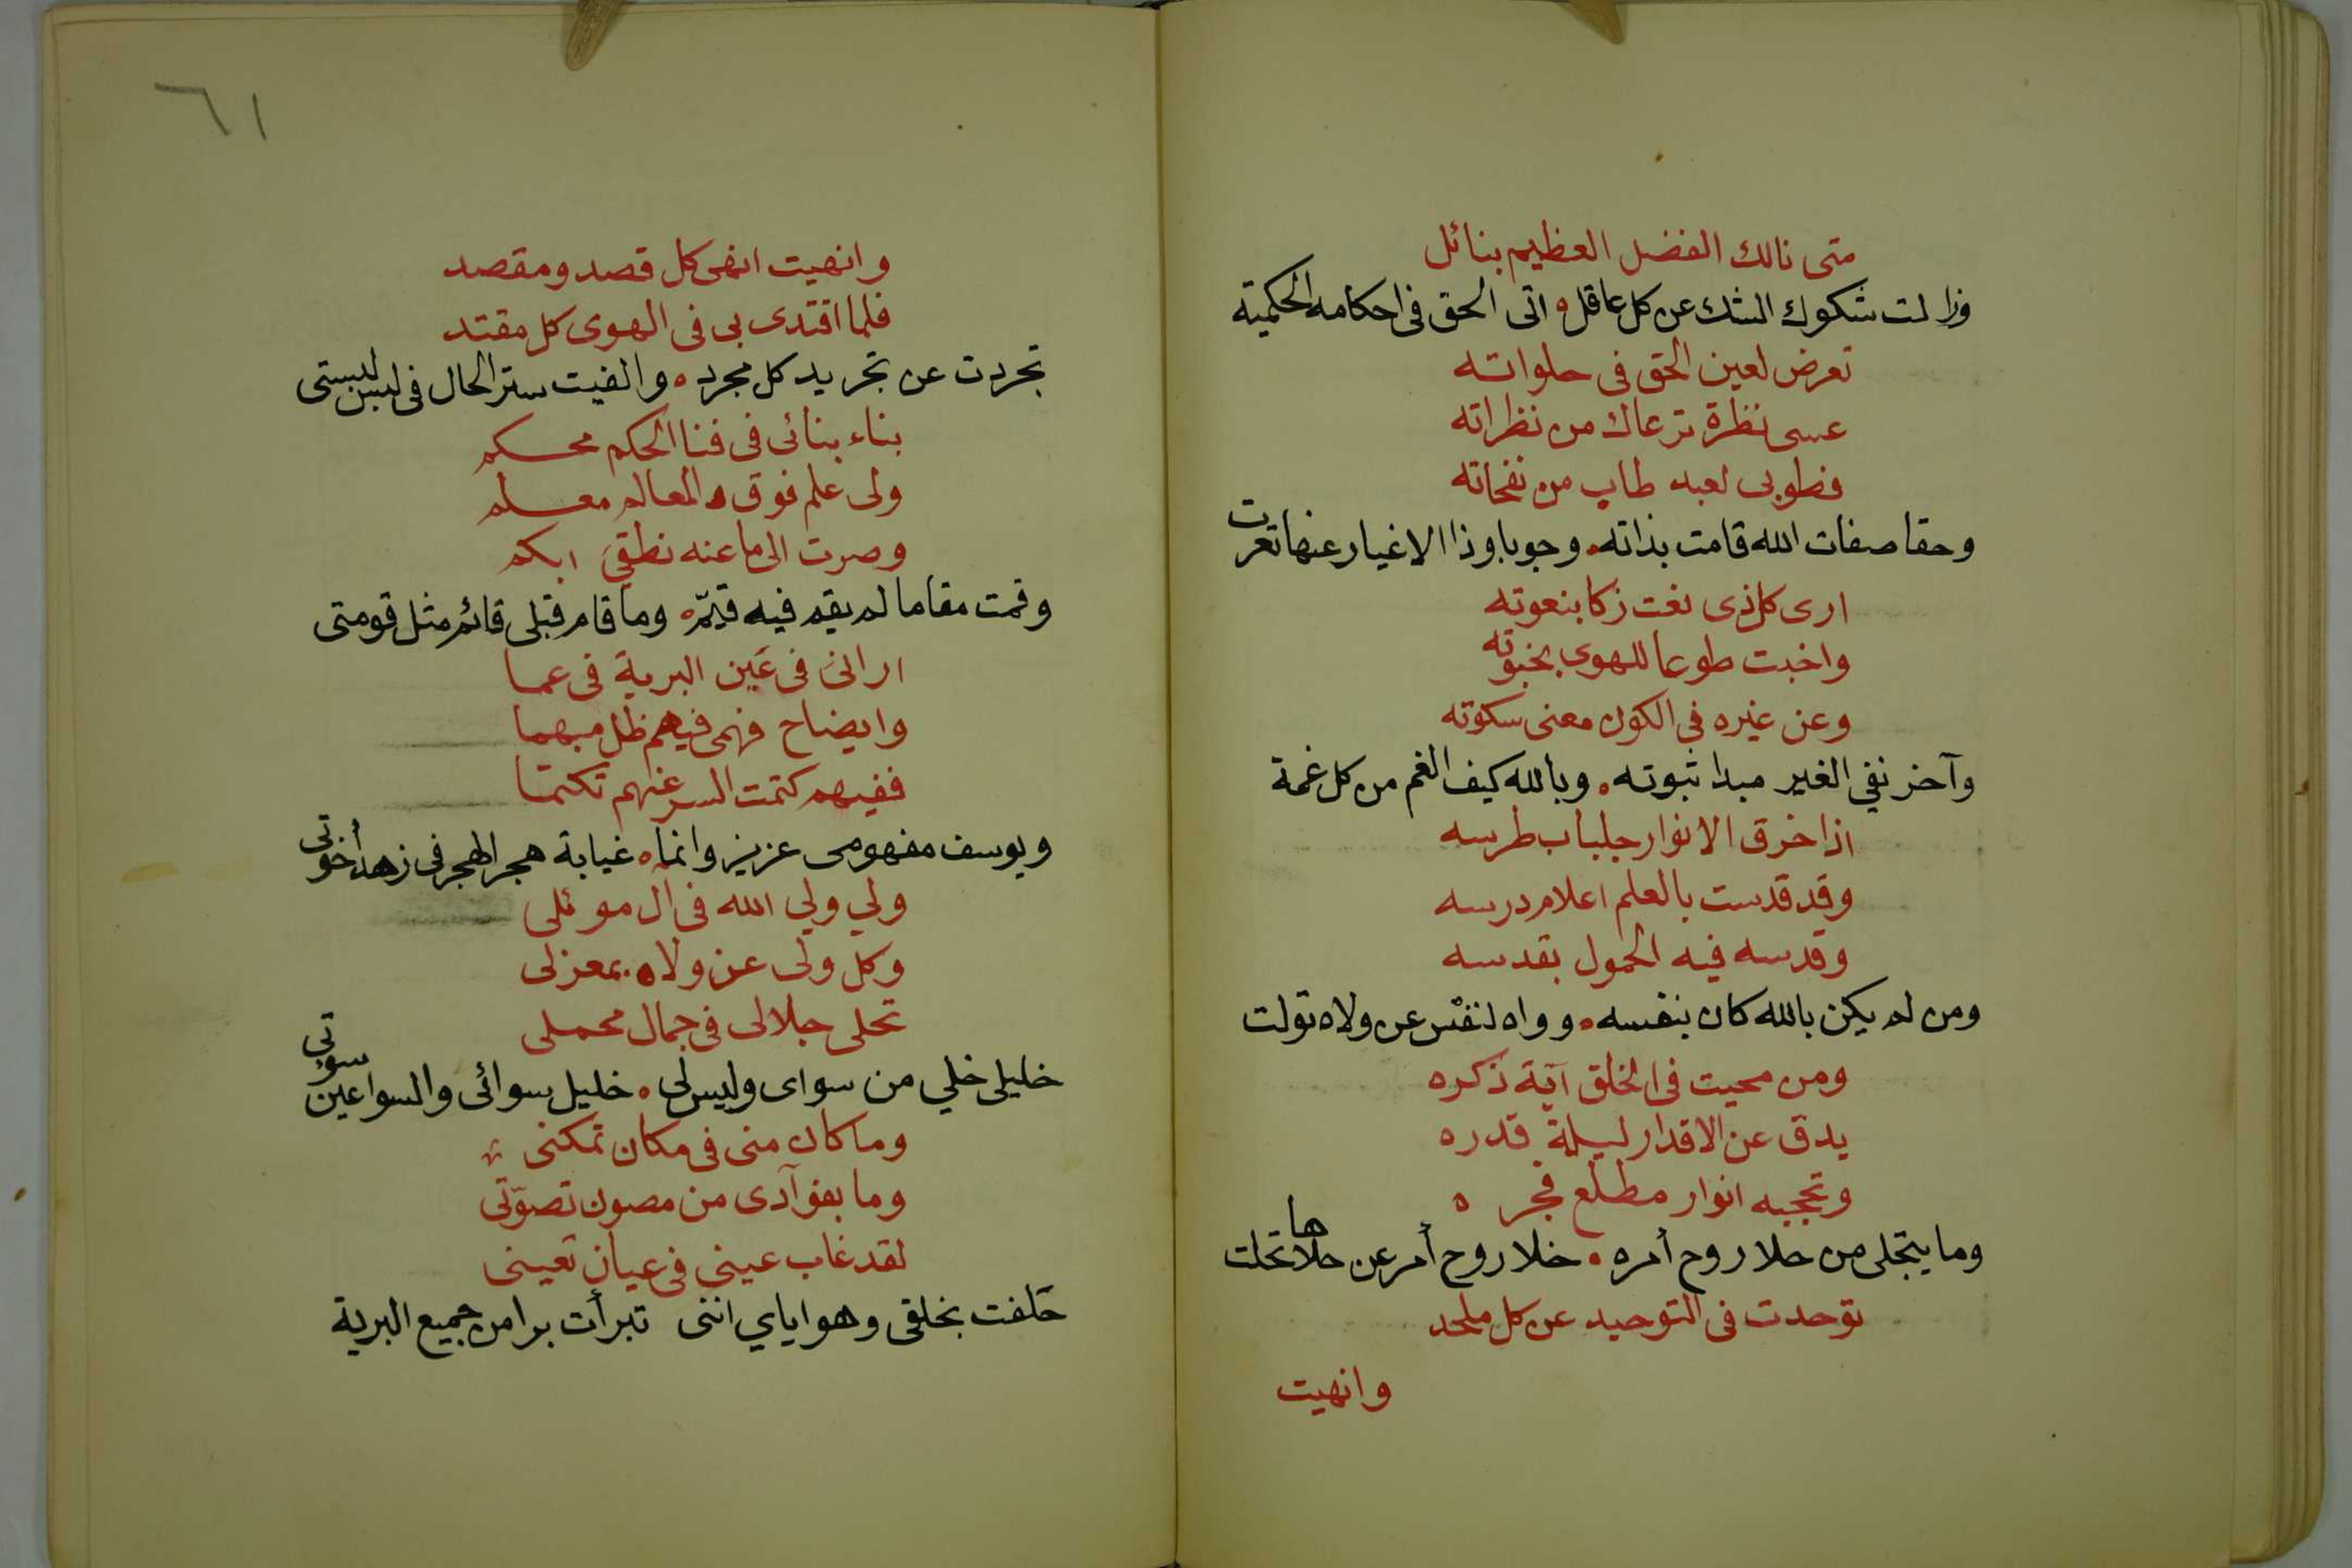 متى نالك الفضل العظيم بنائل
وزالت شكوك الشك عن كل عاقل ه اتى الحق فى احكامه الحكمية
تعرض لعين الحق فى حلواته
عسى نظرة ترعاك من نظراته
فطوبى لعبد طاب من نفحاته
وحقا صفات الله قامت بذاته ه وجوبا وذا الاغيار عنها تعرت
ارى كل ذى نعت زكا بنعوته
واخبت طوعا للهوى بخبوته
وعن غيره فى الكون معنى سكوته
وآخر نفي الغير مبدا ثبوته ه وبالله كيف الغم من كل غمة
اذا خرق الانوار جلباب طرسه
وقد قدست بالعلم اعلام درسه
وقدسه فيه الحمول بقدسه
ومن لم يكن بالله كان بنفسه ه وواه لنفس عن ولاه تولت
ومن محيت فى الخلق آية ذكره
يدق عن الاقدار ليلة قدره
وتحجبه انوار مطلع فجره
وما يتجلى من حلا روح أمره ه خلا روح أمر عن حلاها تحلت
توحدت فى التوحيد عن كل ملحد
وانهيت
٦١
وانهيت انهى كل قصد ومقصد
فلما اقتدى بى فى الهوى كل مقتد
تجردت عن تجريد كل مجرد ه والفيت ستر الحال فى لبس لبستى
بناء بنائى فى فنا الحكم محكم
ولى علم فوق المعالم معلم
وصرت الى ما عنه نطقي ابكم
وقمت مقاما لم يقم فيه قيّم ه وما قام قبلى قائم مثل قومتى
ارانى فى عَين البرية فى عما
وايضاح فهمى فيهم ظل مبهما
ففيهم كتمت السر عنهم تكتما
ويوسف مفهومى عزيز وانما ه غيابة هجر الهجر فى زهد أخوتى
ولي ولي الله فى آل موئلى
وكل ولى عن ولاه بمعزلى
تحلى جلالى فى جمال محملى
خليلى خلي من سواى وليس لى ه خليل سوائى والسوا عين سوءتي
وما كان منى فى مكان تمكنى
وما بفوآدى من مصون تصوّنى
لقد غاب عينى فى عيان تعينى
حَلفت بخلقى وهو اياي اننى تبرأت برا من جميع البرية